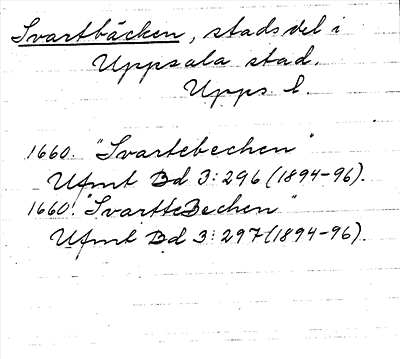 Svartbäcken, stadsdel i
Uppsala stad.
Upps l.
1660. "Svartebechen"
Ufmt Bd 3:296 (1894-96).
1660. "SvartteBechen"
Ufmt Bd 3:297 (1894-96).